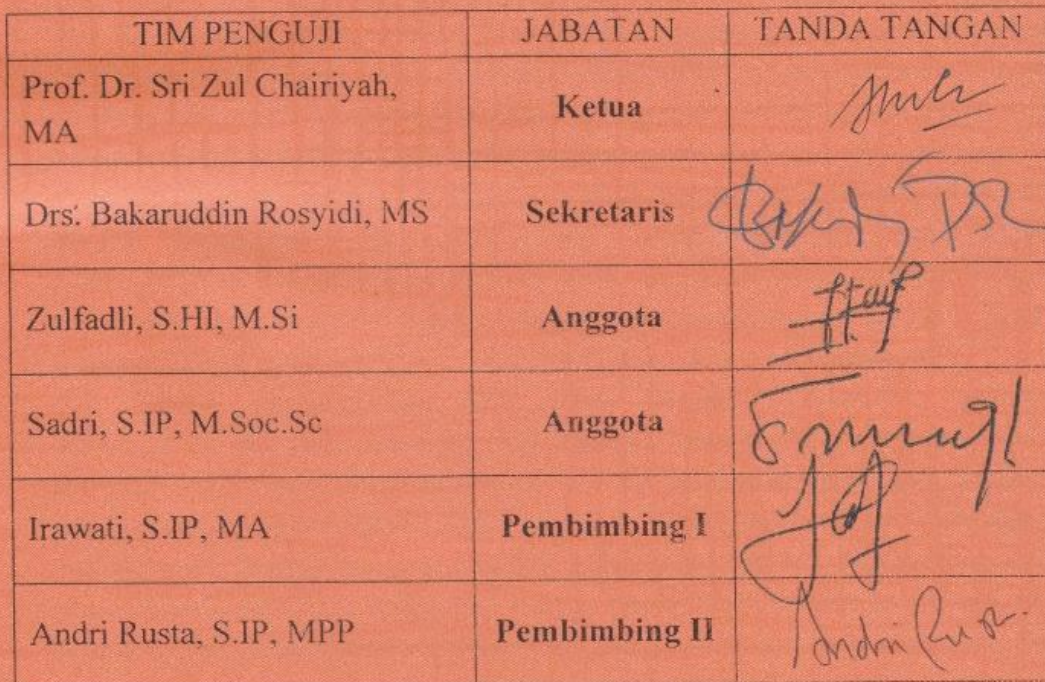 TIM PENGUJI JABATAN TANDA TANGAN
Prof. Dr. Sri Zul Chairiyah,
MA
Ketua
Drs. Bakaruddin Rosyidi, MS Sekretaris
Zulfadli, S.HI, M.Si Anggota
Sadri, S.IP, M.Soc.Sc Anggota
Irawati, S.IP, MA Pembimbing I
Andri Rusta, S.IP, MPP Pembimbing II